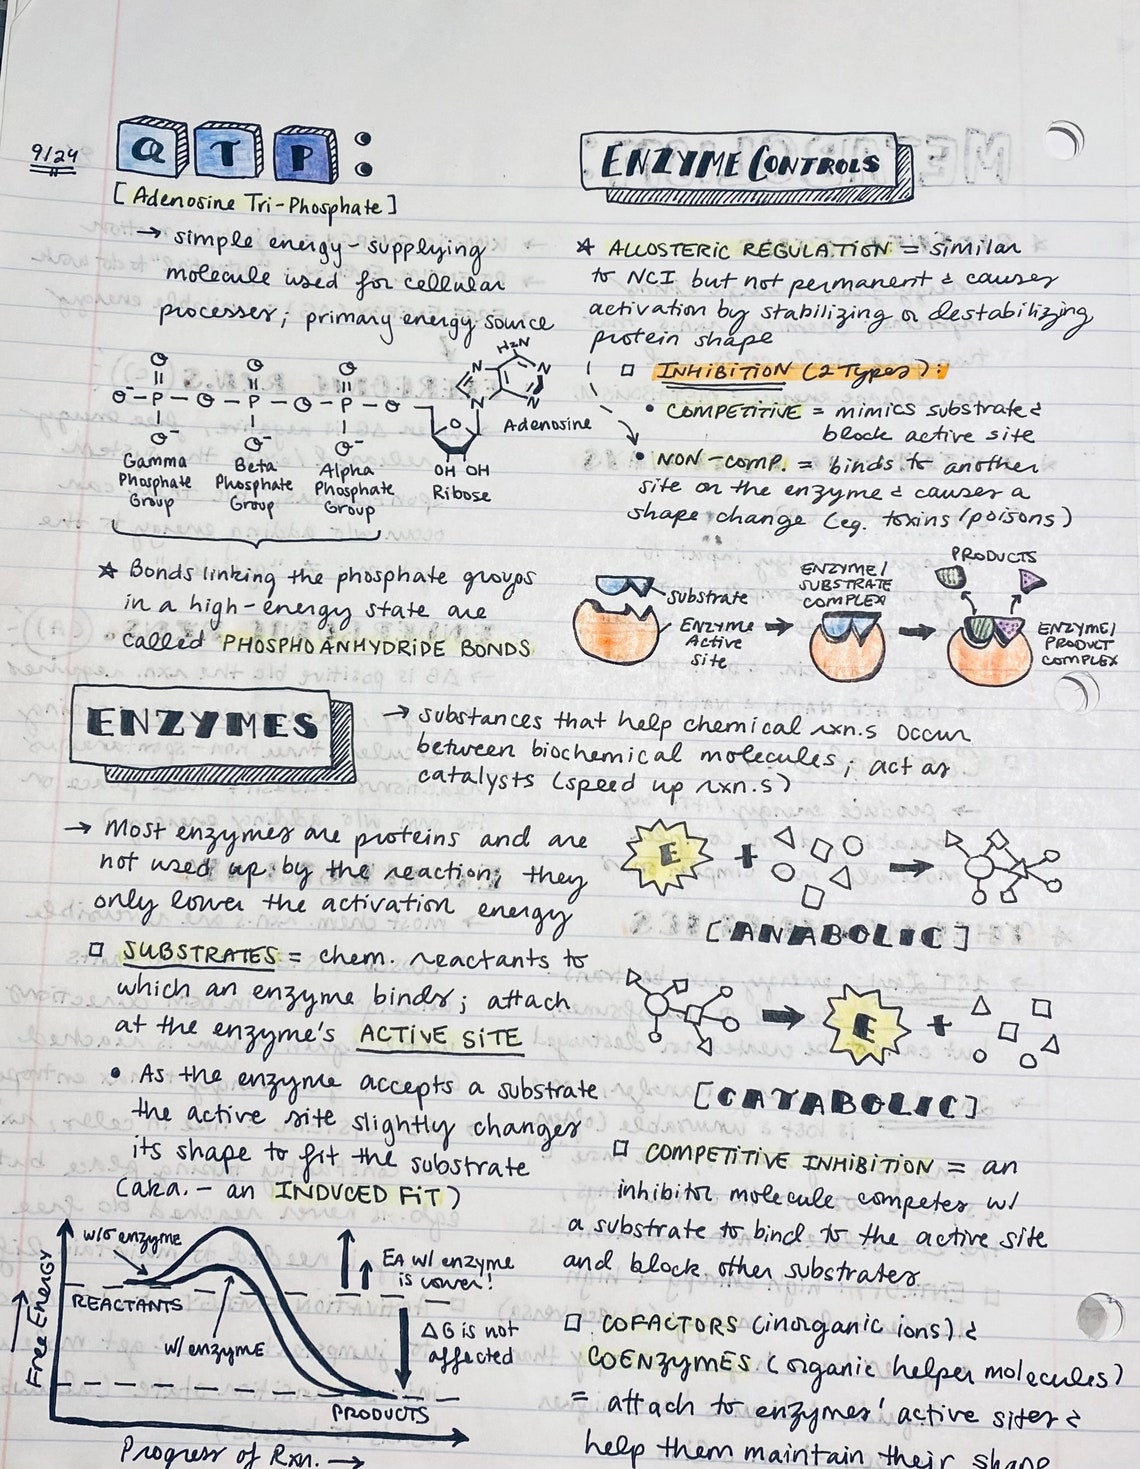 9/24
ATP:
[Adenosine Tri-Phosphate]
→ simple energy-supplying
molecule used for cellular
processes; primary energy source
H₂N
N
N
N
N
O O O
O⁻ - P - O - P - O - P - O
O⁻ O⁻ O⁻
O
OH OH
Adenosine
Ribose
Gamma
Phosphate
Group
Beta
Phosphate
Group
Alpha
Phosphate
Group
☆ Bonds linking the phosphate groups
in a high-energy state are
called PHOSPHOANHYDRIDE BONDS
ENZYMES
→ substances that help chemical rxn.s occur
between biochemical molecules; act as
catalysts (speed up rxn.s)
→ Most enzymes are proteins and are
not used up by the reaction; they
only lower the activation energy
□ SUBSTRATES = chem. reactants to
which an enzyme binds; attach
at the enzyme's ACTIVE SITE
• As the enzyme accepts a substrate
the active site slightly changes
its shape to fit the substrate
(aka. - an INDUCED FIT)
w/o enzyme
REACTANTS
w/ enzyme
EA w/ enzyme
is lower!
ΔG is not
affected
PRODUCTS
Free Energy →
Progress of Rxn. →
ENZYME CONTROLS
☆ ALLOSTERIC REGULATION = similar
to NCI but not permanent & causes
activation by stabilizing or destabilizing
protein shape
□ INHIBITION (2 Types):
• COMPETITIVE = mimics substrate &
block active site
• NON-COMP. = binds to another
site on the enzyme & causes a
shape change (eg. toxins/poisons)
Substrate
Enzyme
Active
Site
ENZYME/
SUBSTRATE
COMPLEX
PRODUCTS
ENZYME/
PRODUCT
COMPLEX
E +
[ANABOLIC]
E +
[CATABOLIC]
□ COMPETITIVE INHIBITION = an
inhibitor molecule competes w/
a substrate to bind to the active site
and block other substrates
□ COFACTORS (inorganic ions) &
COENZYMES (organic helper molecules)
= attach to enzymes' active sites &
help them maintain their shape